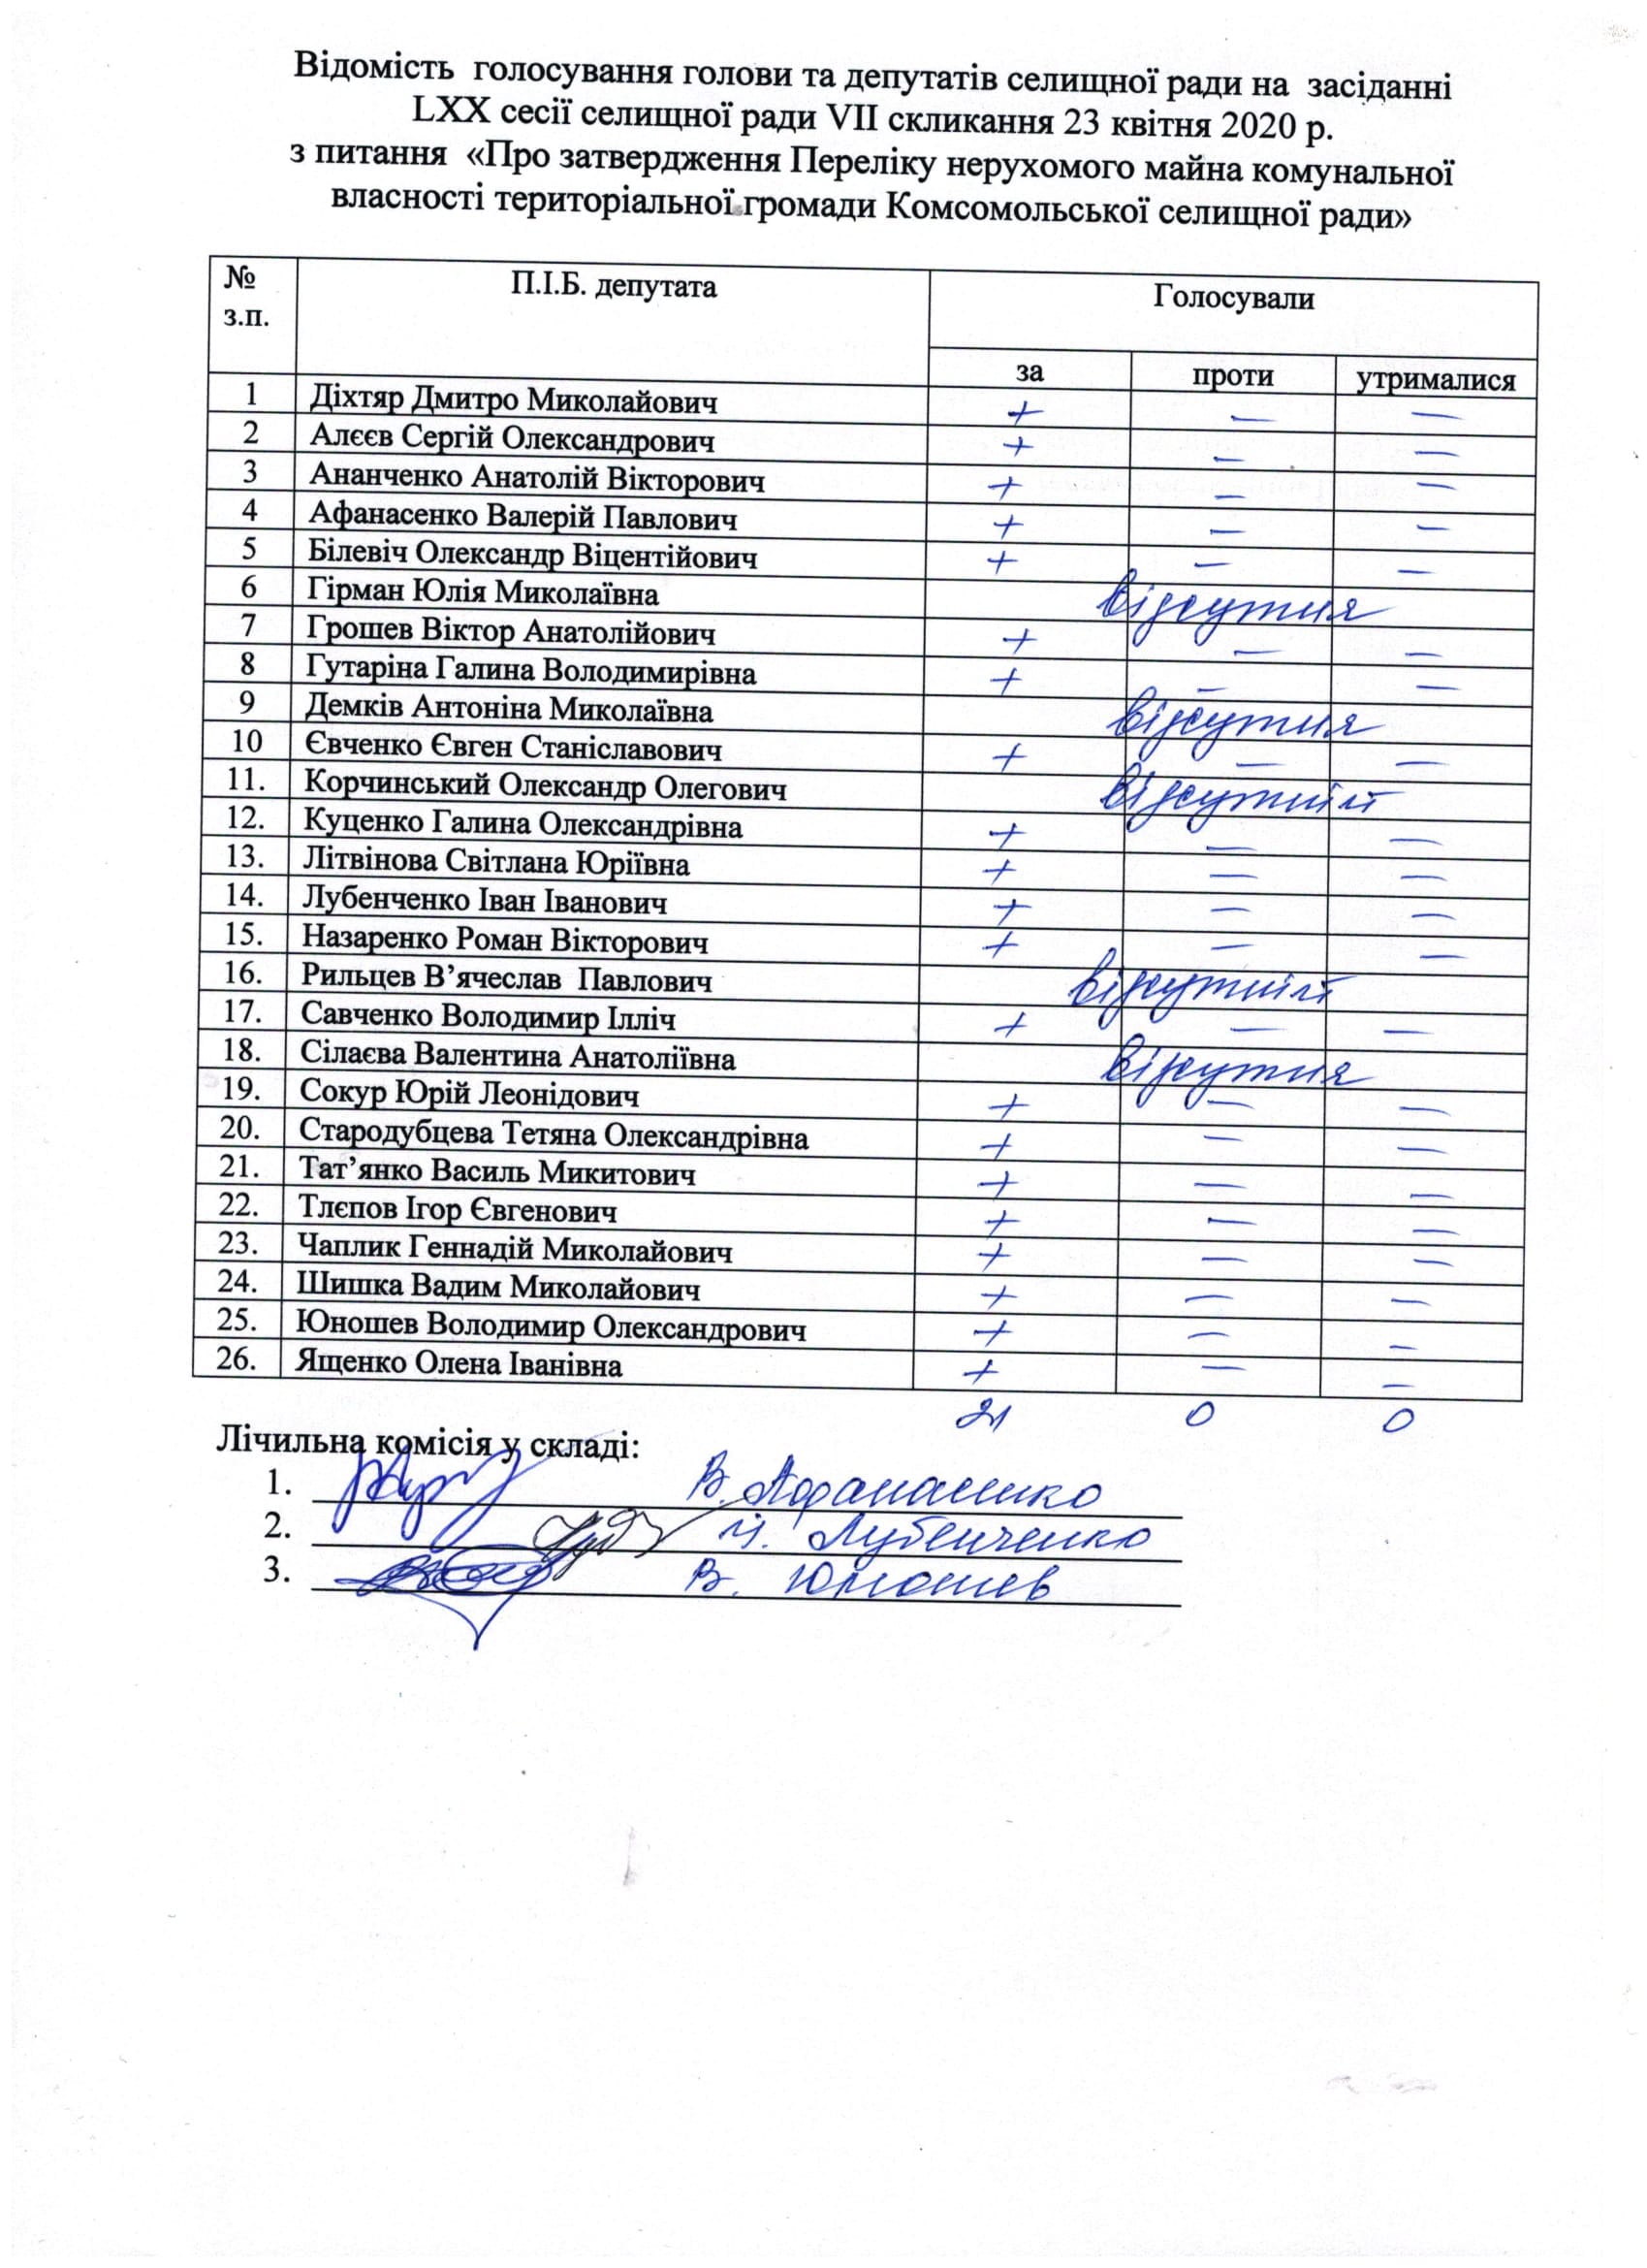 Відомість голосування голови та депутатів селищної ради на засіданні
LXX сесії селищної ради VII скликання 23 квітня 2020 р.
з питання «Про затвердження Переліку нерухомого майна комунальної
власності територіальної громади Комсомольської селищної ради»
№ з.п. П.І.Б. депутата Голосували
за проти утрималися
1 Діхтяр Дмитро Миколайович + — —
2 Алєєв Сергій Олександрович + — —
3 Ананченко Анатолій Вікторович + — —
4 Афанасенко Валерій Павлович + — —
5 Білевіч Олександр Віцентійович + — —
6 Гірман Юлія Миколаївна відсутня
7 Грошев Віктор Анатолійович + — —
8 Гутаріна Галина Володимирівна + — —
9 Демків Антоніна Миколаївна відсутня
10 Євченко Євген Станіславович + — —
11. Корчинський Олександр Олегович відсутній
12. Куценко Галина Олександрівна + — —
13. Літвінова Світлана Юріївна + — —
14. Лубенченко Іван Іванович + — —
15. Назаренко Роман Вікторович + — —
16. Рильцев В’ячеслав Павлович відсутній
17. Савченко Володимир Ілліч + — —
18. Сілаєва Валентина Анатоліївна відсутня
19. Сокур Юрій Леонідович + — —
20. Стародубцева Тетяна Олександрівна + — —
21. Тат’янко Василь Микитович + — —
22. Тлєпов Ігор Євгенович + — —
23. Чаплик Геннадій Миколайович + — —
24. Шишка Вадим Миколайович + — —
25. Юношев Володимир Олександрович + — —
26. Ященко Олена Іванівна + — —
21 0 0
Лічильна комісія у складі:
1. В. Афанасенко
2. І. Лубенченко
3. В. Юношев